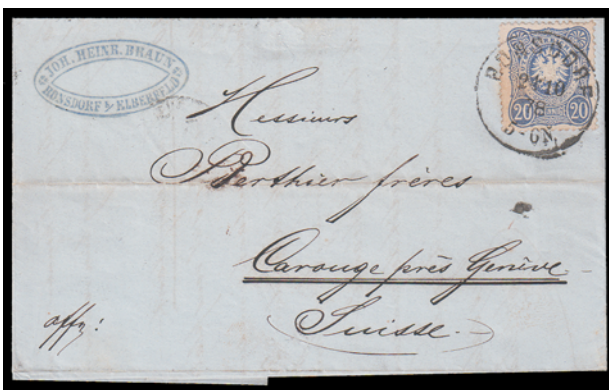 JOH. HEINR. BRAUN
RONSDORF b/ ELBERFELD
RONSDORF
20 20
5-6N.
Messieurs
Berthier frères
Carouge près Genève
Suisse.
affr: